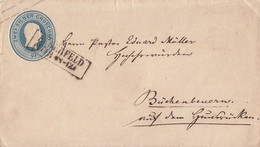 ZWEI SILBER GROSCHEN
FELD
Herrn Pastor Eduard Müller
Hochehrwürden
Büchenbeuren
auf dem Hunsrücken.